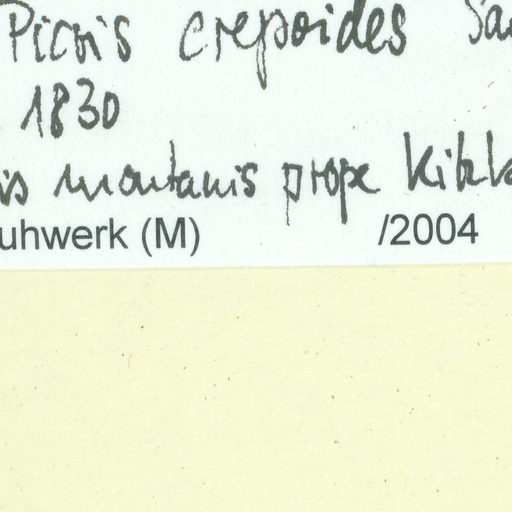 Picris crepoides Sau
1830
is montanis prope Kitzb
uhwerk (M) /2004